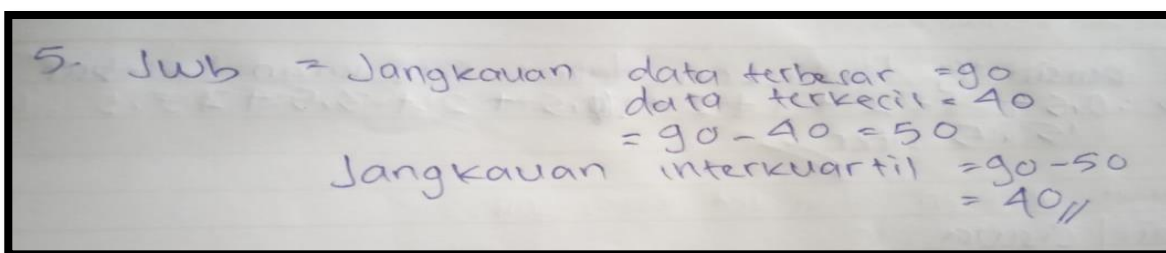 5. Jwb = Jangkauan data terbesar = 90
data terkecil = 40
= 90 - 40 = 50
Jangkauan interkuartil = 90 - 50
= 40 //